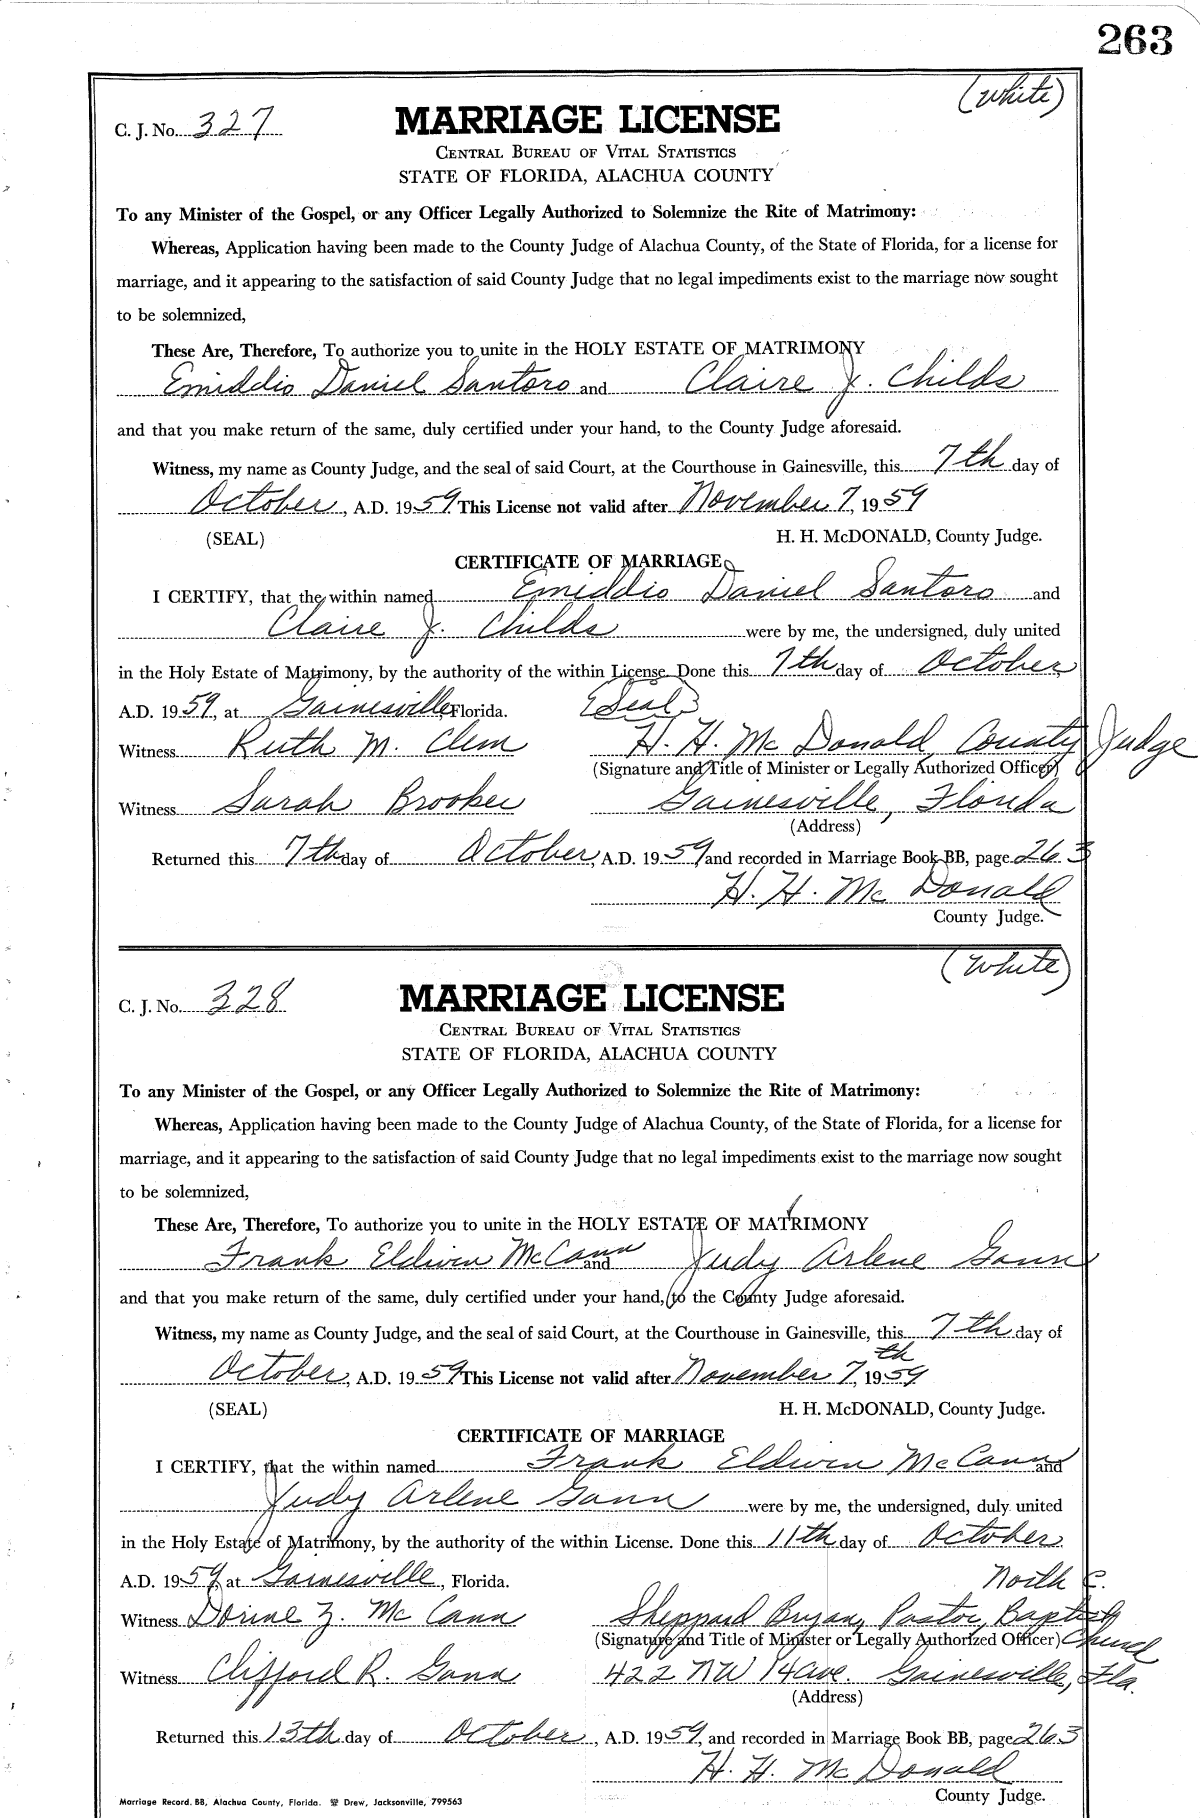 263
(White)
C. J. No. 327 MARRIAGE LICENSE
CENTRAL BUREAU OF VITAL STATISTICS
STATE OF FLORIDA, ALACHUA COUNTY
To any Minister of the Gospel, or any Officer Legally Authorized to Solemnize the Rite of Matrimony:
Whereas, Application having been made to the County Judge of Alachua County, of the State of Florida, for a license for
marriage, and it appearing to the satisfaction of said County Judge that no legal impediments exist to the marriage now sought
to be solemnized,
These Are, Therefore, To authorize you to unite in the HOLY ESTATE OF MATRIMONY
Emiddio Daniel Santoro and Claire J. Childs
and that you make return of the same, duly certified under your hand, to the County Judge aforesaid.
Witness, my name as County Judge, and the seal of said Court, at the Courthouse in Gainesville, this 7th day of
October, A.D. 1959. This License not valid after November 7, 1959
(SEAL) H. H. McDONALD, County Judge.
CERTIFICATE OF MARRIAGE
I CERTIFY, that the within named Emiddio Daniel Santoro and
Claire J. Childs were by me, the undersigned, duly united
in the Holy Estate of Matrimony, by the authority of the within License. Done this 7th day of October,
A.D. 1959, at Gainesville, Florida. (Seal)
Witness Ruth M. Clem H. H. McDonald, County Judge
(Signature and Title of Minister or Legally Authorized Officer)
Witness Sarah Brooker Gainesville, Florida
(Address)
Returned this 7th day of October, A.D. 1959, and recorded in Marriage Book BB, page 263
H. H. McDonald
County Judge.
(White)
C. J. No. 328 MARRIAGE LICENSE
CENTRAL BUREAU OF VITAL STATISTICS
STATE OF FLORIDA, ALACHUA COUNTY
To any Minister of the Gospel, or any Officer Legally Authorized to Solemnize the Rite of Matrimony:
Whereas, Application having been made to the County Judge of Alachua County, of the State of Florida, for a license for
marriage, and it appearing to the satisfaction of said County Judge that no legal impediments exist to the marriage now sought
to be solemnized,
These Are, Therefore, To authorize you to unite in the HOLY ESTATE OF MATRIMONY
Frank Eldwin McCann and Judy Arlene Gann
and that you make return of the same, duly certified under your hand, to the County Judge aforesaid.
Witness, my name as County Judge, and the seal of said Court, at the Courthouse in Gainesville, this 7th day of
October, A.D. 1959 This License not valid after November 7th, 1959
(SEAL) H. H. McDONALD, County Judge.
CERTIFICATE OF MARRIAGE
I CERTIFY, that the within named Frank Eldwin McCann and
Judy Arlene Gann were by me, the undersigned, duly united
in the Holy Estate of Matrimony, by the authority of the within License. Done this 11th day of October
A.D. 1959, at Gainesville, Florida. North C.
Witness Dorine Z. McCann Sheppard Bryan, Pastor, Baptist
(Signature and Title of Minister or Legally Authorized Officer) Church
Witness Clifford R. Gann 422 NW 14 Ave. Gainesville, Fla.
(Address)
Returned this 13th day of October, A.D. 1959, and recorded in Marriage Book BB, page 263
H. H. McDonald
Marriage Record. BB, Alachua County, Florida. Drew, Jacksonville, 799563 County Judge.